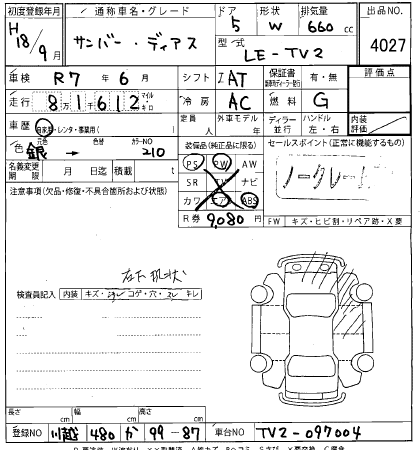 初度登録年月 通称車名・グレード ドア 形状 排気量 出品NO
H18/9月 サンバー・ディアス 5 W 660cc 4027
型式 LE-TV2
車検 R7年6月 シフト IAT 保証書 有・無 評価点
走行 8万1612 マイル キロ 冷房 AC 燃料 G
車歴 自家用・レンタ・事業用( ) 定員 人 外車モデル 年 ディーラー 並行 ハンドル 左・右 内装評価
色 元色 銀 → 色替 カラーNO 210
装備品(純正品に限る) セールスポイント(正常に機能するもの)
名義変更期限 月 日迄 積載 t
PS PW AW
SR TV ナビ
カワ エアB ABS
ノークレーム
注意事項(欠品・修復・不具合箇所および状態)
R券 9,080円
FW キズ・ヒビ割・リペア跡・X要
左下現状
検査員記入 内装 キズ・コゲ・穴・スレ キレ
長さ cm 幅 cm 高さ cm
登録NO 川越 480 か 99-87 車台NO TV2-097004